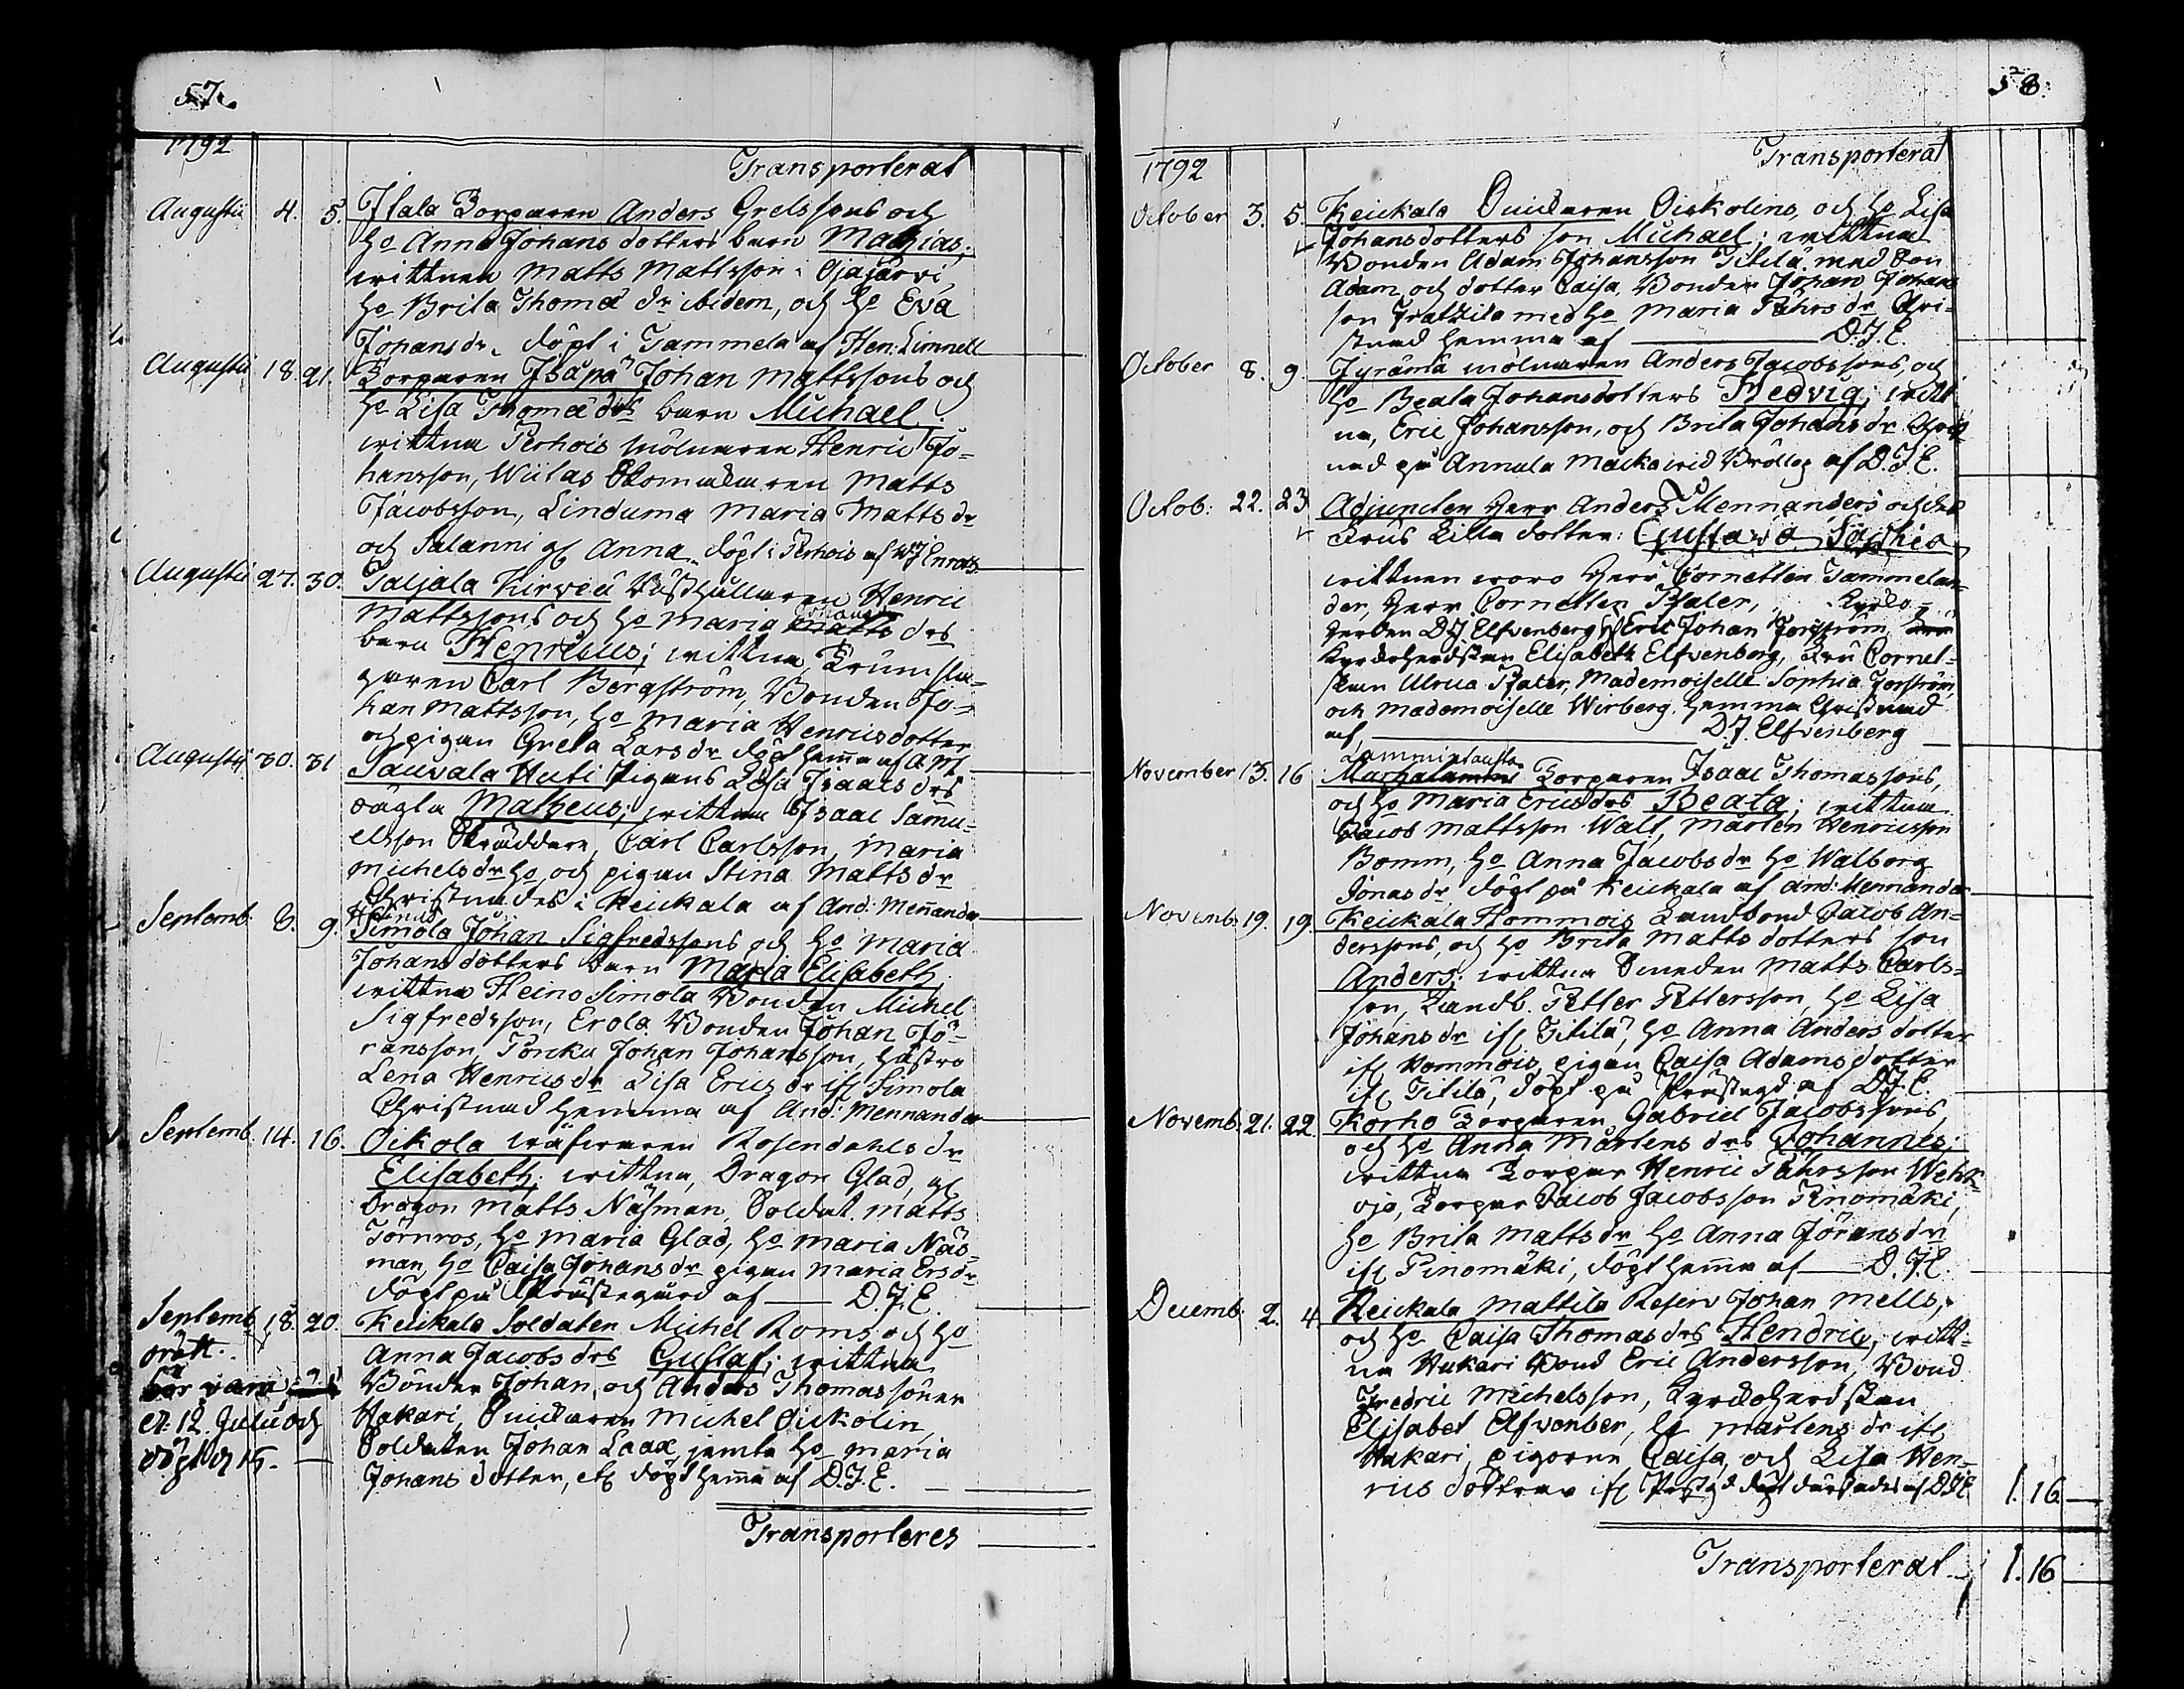 57.
1792
Transporterat
Augustii 4. 5. Isala Torparen Anders Grelssons och
ho Anna Johans dotters barn Mathias;
wittnen Matts Mattsson i Ojajärvi,
ho Brita Thomæ dr ibidem, och ho Eva
Johans dr. döpt i Tammela af Hen: Limnell
Augustii 18. 21. Torparen Isäpä Johan Mattssons och
ho Lisa Thomæ drs barn Michael.
wittna Perhois mölnaren Henric Jo=
hansson, Wiilas Skomakaren Matts
Jacobsson, Linduma Maria Matts dr
och Salanni Anna. döpt i Perhois af
Augustii 27. 30. Taljala Kirweü Rusthållaren Henric
Mattssons och ho Maria Johans drs
barn Henricus; wittna, Trumsla=
garen Carl Bergström, Bonden Jo=
han Mattsson, ho Maria Henricsdotter
och pigan Greta Lars dr döpt hema af AM
Augustii 30. 31 Sauvala Huti Pigans Lisa Isaacs drs
oägta Matheus; wittna Isaac Samu=
elsson Skräddare, Carl Carlsson, Maria
Michels dr ho och pigan Stina Matts dr
Christnades i Keickala af And: Menander
Septemb. 8. 9. Simola Johan Sigfredssons och ho Maria
Johans dotters barn Maria Elisabeth
wittna Heino Simola Bonden Michel
Sigfredsson, Erola Bonden Johan Jö=
ransson, Poncka Johan Johansson, hustro
Lena Henrics dr Lisa Erics dr ifr Simola
Christnad hemma af And: Mennander
Septemb. 14. 16. Oikola wäfwaren Rosendahls dr
Elisabeth; wittna, Dragon Glad,
Dragon Matts Näsman, Soldat. Matts
Törnros, ho Maria Glad, ho Maria Näs=
man, ho Caisa Johans dr pigan Maria Ers dr
döpt på Prästegård af D.J.E.
Septemb 18. 20. Keickala Soldaten Michel Roms och ho
orätt. Anna Jacobs drs Gustaf; wittna
bör vara Bonden Johan, och Anders Thomassöner
d. 12. Julii och Hakari, Snickaren Michel Oickolin,
döpt d 15. Soldaten Johan Laax, jemte ho Maria
Johans dotter, döpt hema af D.J.E.
Transporteres
58.
1792
Transporterat
October 3. 5. Keickala Snickaren Oickolins, och ho Lisa
Johansdotters son Michael; wittna
Bonden Adam Johansson Titilä med son
Adam och dotter Caisa, Bonden Johan Johans
son Prattila med ho Maria Påhrs dr Chri=
stnad hemma af D.J.E.
October 8. 9. Jyrämä mölnaren Anders Jacobssons, och
ho Beata Johansdotters Hedvig; witt
na, Eric Johansson, och Brita Johans dr Christ
nad på Annula Macka wid Bröllop af D.J.E.
Octob: 22. 23 Adjuncten Herr Anders Mennanders och dess
Frus Lilla dotter: Gustava Sophia
wittnen woro Herr Cornetten Tammelan=
der, Herr Cornetten Pfaler, Kyrko=
herden DJ Elfvenberg, Eric Johan Forsström,
Kyrkoherdskan Elisabeth Elfvenberg, Fru Cornet=
skan Ulrica Pfaler, Mademoiselle Sophia Forström,
och Mademoiselle Wirberg. hemma Christnad
af D.J. Elfvenberg
November 13. 16 Lammintausta Torparen Isaac Thomassons,
och ho Maria Erics drs Beata; wittna
Jacob Mattsson Wall, Mårten Henricsson
Bomm, ho Anna Jacobs dr ho Walborg
Jonas dr döpt på Keickala af And: Mennander
Novemb. 19. 19 Keickala Hommois Landbond Jacob An=
derssons, och ho Brita Matts dotters son
Anders; wittna Smeden Matts Carls=
son, Landb. Petter Pettersson, ho Lisa
Johans dr ifr Titilä, ho Anna Anders dotter
ifr Hommois, pigan Caisa Adams dotter
ifr Titilä, döpt på Prästegd af D.J.E.
Novemb. 21. 22. Korho Torparen Gabriel Jacobssons,
och ho Anna Mårtens drs Johannes;
wittna Torpar Henric Påhrsson Wehk=
oja, Torpar Jacob Jacobsson Pinomäki,
ho Brita Matts dr ho Anna Jörans dr
ifr Pinomäki, döpt hema af D.J.E.
Decemb. 2. 4 Keickala Mattila Reserv Johan Mells,
och ho Caisa Thomas drs Hendric; witt=
na Hukari Bond Eric Andersson, Bond
Fredric Michelsson, Kyrkoherdskan
Elisabet Elfwenber, Mårtens dr ifr
Hukari, pigorna Caisa, och Lisa Hen=
rics döttrar ifr Prestgd döpt därstädes af DJE 1. 16
Transporterat 1. 16